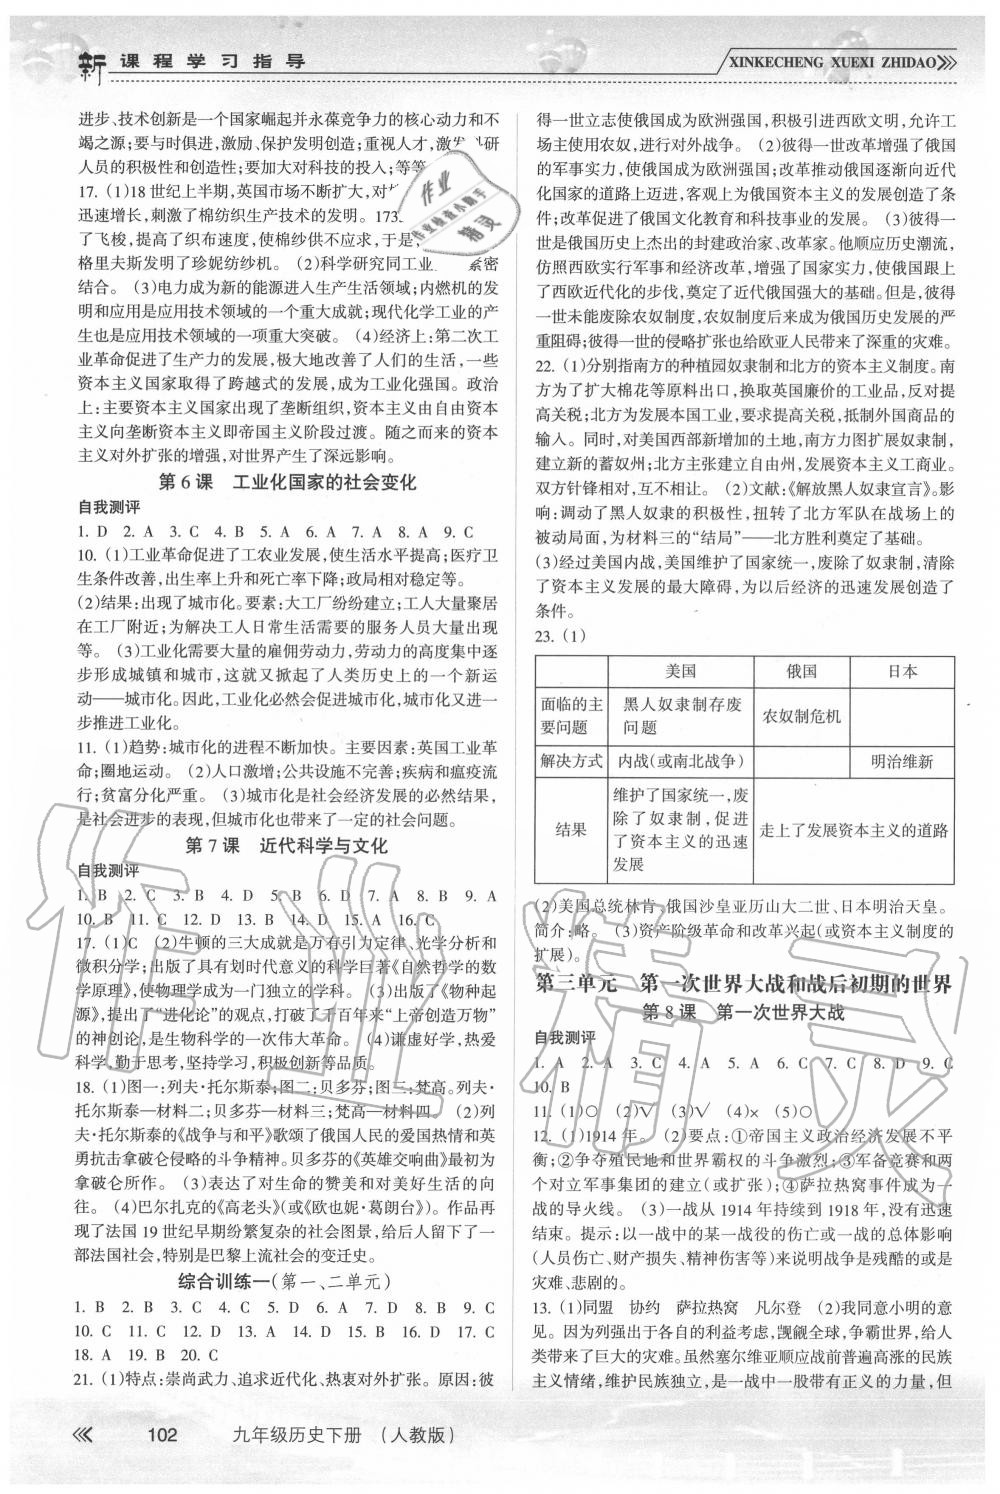 新课程学习指导
XINKECHENG XUEXI ZHIDAO
进步、技术创新是一个国家崛起并永葆竞争力的核心动力和不
竭之源;要与时俱进,激励、保护发明创造;重视人才,激发科研
人员的积极性和创造性;要加大对科技的投入;等等
17. (1)18 世纪上半期,英国市场不断扩大,对
迅速增长,刺激了棉纺织生产技术的发明。173
了飞梭,提高了织布速度,使棉纱供不应求,于是,
格里夫斯发明了珍妮纺纱机。 (2)科学研究同工业 紧密
结合。 (3)电力成为新的能源进入生产生活领域;内燃机的发
明和应用是应用技术领域的一个重大成就;现代化学工业的产
生也是应用技术领域的一项重大突破。 (4)经济上:第二次工
业革命促进了生产力的发展,极大地改善了人们的生活,一些
资本主义国家取得了跨越式的发展,成为工业化强国。政治
上:主要资本主义国家出现了垄断组织,资本主义由自由资本
主义向垄断资本主义即帝国主义阶段过渡。随之而来的资本
主义对外扩张的增强,对世界产生了深远影响。
第 6 课 工业化国家的社会变化
自我测评
1. D 2. A 3. C 4. B 5. A 6. A 7. A 8. A 9. C
10. (1)工业革命促进了工农业发展,使生活水平提高;医疗卫
生条件改善,出生率上升和死亡率下降;政局相对稳定等。
(2)结果:出现了城市化。要素:大工厂纷纷建立;工人大量聚居
在工厂附近;为解决工人日常生活需要的服务人员大量出现
等。 (3)工业化需要大量的雇佣劳动力,劳动力的高度集中逐
步形成城镇和城市,这就又掀起了人类历史上的一个新运
动——城市化。因此,工业化必然会促进城市化,城市化又进一
步推进工业化。
11. (1)趋势:城市化的进程不断加快。主要因素:英国工业革
命;圈地运动。 (2)人口激增;公共设施不完善;疾病和瘟疫流
行;贫富分化严重。 (3)城市化是社会经济发展的必然结果,
是社会进步的表现,但城市化也带来了一定的社会问题。
第 7 课 近代科学与文化
自我测评
1. B 2. C 3. B 4. D 5. B 6. D 7. A 8. B 9. A
10. B 11. C 12. D 13. B 14. D 15. A 16. C
17. (1)C (2)牛顿的三大成就是万有引力定律、光学分析和
微积分学;出版了具有划时代意义的科学巨著《自然哲学的数
学原理》,使物理学成为一门独立的学科。 (3)出版了《物种起
源》,提出了“进化论”的观点,打破了千百年来“上帝创造万物”
的神创论,是生物科学的一次伟大革命。 (4)谦虚好学,热爱
科学,勤于思考,坚持学习,积极创新等品质。
18. (1)图一:列夫·托尔斯泰;图二:贝多芬;图三:梵高。列夫·
托尔斯泰—材料二;贝多芬—材料三;梵高—材料四。 (2)列
夫·托尔斯泰的《战争与和平》歌颂了俄国人民的爱国热情和英
勇抗击拿破仑侵略的斗争精神。贝多芬的《英雄交响曲》最初为
拿破仑所作。 (3)表达了对生命的赞美和对美好生活的向
往。 (4)巴尔扎克的《高老头》(或《欧也妮·葛朗台》)。作品再现
了法国 19 世纪早期纷繁复杂的社会图景,传给人们留下了一
部法国社会,特别是巴黎上流社会的变迁史。
综合训练一(第一、二单元)
1. B 2. B 3. C 4. C 5. D 6. B 7. B 8. B 9. C
10. C 11. C 12. D 13. C 14. D 15. B 16. D 17. C
18. A 19. B 20. C
21. (1)特点:崇尚武力、追求近代化、热衷对外扩张。原因:彼
得一世立志使俄国成为欧洲强国,积极引进西欧文明,允许工
场主使用农奴,进行对外战争。 (2)彼得一世改革增强了俄国
的军事实力,使俄国成为欧洲强国;改革推动俄国逐渐向近代
化国家的道路上迈进,客观上为俄国资本主义的发展创造了条
件;改革促进了俄国文化教育和科技事业的发展。 (3)彼得一
世是俄国历史上杰出的封建政治家、改革家。他顺应历史潮流,
仿照西欧实行军事和经济改革,增强了国家实力,使俄国跟上
了西欧近代化的步伐,奠定了近代俄国强大的基础。但是,彼得
一世未能废除农奴制度,农奴制度后来成为俄国历史发展的严
重阻碍;彼得一世的侵略扩张也给欧亚人民带来了深重的灾难。
22. (1)分别指南方的种植园奴隶制和北方的资本主义制度。南
方为了扩大棉花等原料出口,换取英国廉价的工业品,反对提
高关税;北方为发展本国工业,要求提高关税,抵制外国商品的
输入。同时,对美国西部新增加的土地,南方力图扩展奴隶制,
建立新的蓄奴州;北方主张建立自由州,发展资本主义工商业。
双方针锋相对,互不相让。 (2)文献:《解放黑人奴隶宣言》。影
响:调动了黑人奴隶的积极性,扭转了北方军队在战场上的
被动局面,为材料三的“结局”——北方胜利奠定了基础。
(3)经过美国内战,美国维护了国家统一,废除了奴隶制,清除
了资本主义发展的最大障碍,为以后经济的迅速发展创造了
条件。
23. (1)
美国 俄国 日本
面临的主要问题 黑人奴隶制存废问题 农奴制危机
解决方式 内战(或南北战争) 明治维新
结果 维护了国家统一,废除了奴隶制,促进了资本主义的迅速发展 走上了发展资本主义的道路
(2)美国总统林肯、俄国沙皇亚历山大二世、日本明治天皇。
简介:略。 (3)资产阶级革命和改革兴起(或资本主义制度的
扩展)。
第三单元 第一次世界大战和战后初期的世界
第 8 课 第一次世界大战
自我测评
1. A 2. A 3. C 4. A 5. C 6. C 7. C 8. D 9. C
10. B
11. (1)○ (2)√ (3)√ (4)× (5)○
12. (1)1914 年。 (2)要点:①帝国主义政治经济发展不平
衡;②争夺殖民地和世界霸权的斗争激烈;③军备竞赛和两
个对立军事集团的建立(或扩张);④萨拉热窝事件成为一
战的导火线。 (3)一战从 1914 年持续到 1918 年,没有迅速
结束。提示:以一战中的某一战役的伤亡或一战的总体影响
(人员伤亡、财产损失、精神伤害等)来说明战争是残酷的或是
灾难、悲剧的。
13. (1)同盟 协约 萨拉热窝 凡尔登 (2)我同意小明的意
见。因为列强出于各自的利益考虑,觊觎全球,争霸世界,给人
类带来了巨大的灾难。虽然塞尔维亚顺应战前普遍高涨的民族
主义情绪,维护民族独立,是一战中一股带有正义的力量,但
102 九年级历史下册 (人教版)
作业
作业检查小助手
精灵
作业精灵